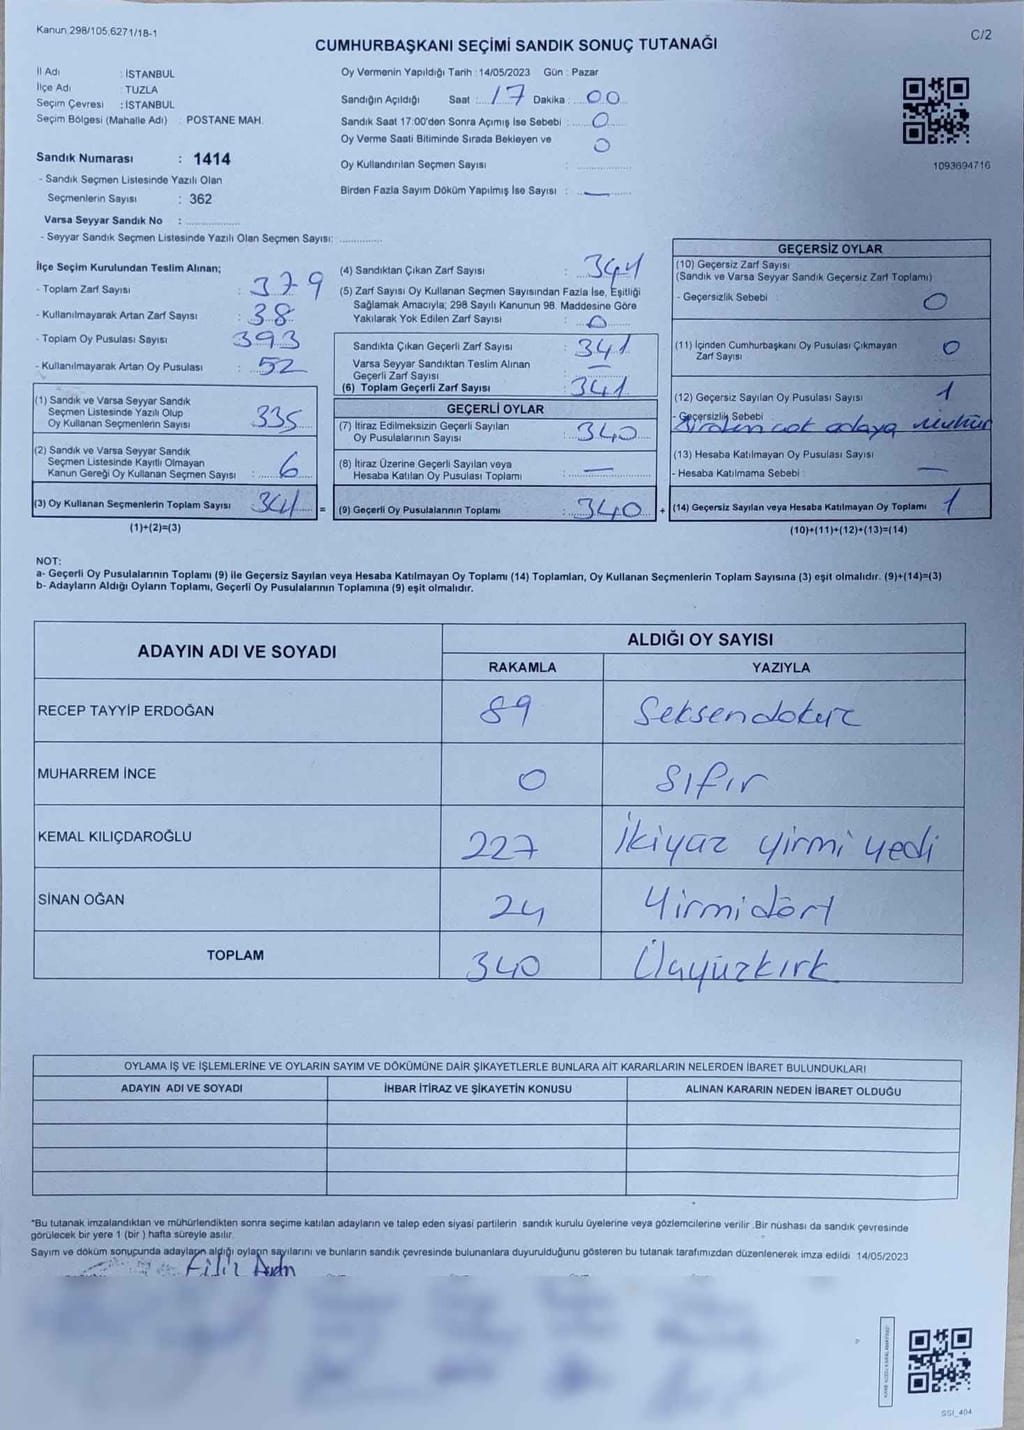 Kanun 298/105,6271/18-1
C/2
CUMHURBAŞKANI SEÇİMİ SANDIK SONUÇ TUTANAĞI
İl Adı : İSTANBUL
İlçe Adı : TUZLA
Seçim Çevresi : İSTANBUL
Seçim Bölgesi (Mahalle Adı) POSTANE MAH.
Sandık Numarası : 1414
- Sandık Seçmen Listesinde Yazılı Olan
Seçmenlerin Sayısı : 362
Varsa Seyyar Sandık No :
- Seyyar Sandık Seçmen Listesinde Yazılı Olan Seçmen Sayısı:
Oy Vermenin Yapıldığı Tarih : 14/05/2023 Gün : Pazar
Sandığın Açıldığı Saat : 17 Dakika : 00
Sandık Saat 17:00'den Sonra Açımış İse Sebebi : 0
Oy Verme Saati Bitiminde Sırada Bekleyen ve 0
Oy Kullandırılan Seçmen Sayısı :
Birden Fazla Sayım Döküm Yapılmış İse Sayısı : —
1093694716
İlçe Seçim Kurulundan Teslim Alınan;
- Toplam Zarf Sayısı : 379
- Kullanılmayarak Artan Zarf Sayısı : 38
- Toplam Oy Pusulası Sayısı : 393
- Kullanılmayarak Artan Oy Pusulası : 52
(1) Sandık ve Varsa Seyyar Sandık
Seçmen Listesinde Yazılı Olup
Oy Kullanan Seçmenlerin Sayısı : 335
(2) Sandık ve Varsa Seyyar Sandık
Seçmen Listesinde Kayıtlı Olmayan
Kanun Gereği Oy Kullanan Seçmen Sayısı : 6
(3) Oy Kullanan Seçmenlerin Toplam Sayısı 341 =
(1)+(2)=(3)
(4) Sandıktan Çıkan Zarf Sayısı : 341
(5) Zarf Sayısı Oy Kullanan Seçmen Sayısından Fazla İse, Eşitliği
Sağlamak Amacıyla; 298 Sayılı Kanunun 98. Maddesine Göre
Yakılarak Yok Edilen Zarf Sayısı : 0
Sandıkta Çıkan Geçerli Zarf Sayısı : 341
Varsa Seyyar Sandıktan Teslim Alınan
Geçerli Zarf Sayısı : —
(6) Toplam Geçerli Zarf Sayısı : 341
GEÇERLİ OYLAR
(7) İtiraz Edilmeksizin Geçerli Sayılan
Oy Pusulalarının Sayısı : 340
(8) İtiraz Üzerine Geçerli Sayılan veya
Hesaba Katılan Oy Pusulası Toplamı : —
(9) Geçerli Oy Pusulalarının Toplamı : 340 +
GEÇERSİZ OYLAR
(10) Geçersiz Zarf Sayısı
(Sandık ve Varsa Seyyar Sandık Geçersiz Zarf Toplamı)
- Geçersizlik Sebebi : 0
(11) İçinden Cumhurbaşkanı Oy Pusulası Çıkmayan
Zarf Sayısı 0
(12) Geçersiz Sayılan Oy Pusulası Sayısı 1
- Geçersizlik Sebebi
Birden çok adaya mühür
(13) Hesaba Katılmayan Oy Pusulası Sayısı
- Hesaba Katılmama Sebebi : —
(14) Geçersiz Sayılan veya Hesaba Katılmayan Oy Toplamı 1
(10)+(11)+(12)+(13)=(14)
NOT:
a- Geçerli Oy Pusulalarının Toplamı (9) ile Geçersiz Sayılan veya Hesaba Katılmayan Oy Toplamı (14) Toplamları, Oy Kullanan Seçmenlerin Toplam Sayısına (3) eşit olmalıdır. (9)+(14)=(3)
b- Adayların Aldığı Oyların Toplamı, Geçerli Oy Pusulalarının Toplamına (9) eşit olmalıdır.
ADAYIN ADI VE SOYADI
ALDIĞI OY SAYISI
RAKAMLA YAZIYLA
RECEP TAYYİP ERDOĞAN 89 Seksendokuz
MUHARREM İNCE 0 Sıfır
KEMAL KILIÇDAROĞLU 227 İkiyüz yirmi yedi
SİNAN OĞAN 24 Yirmidört
TOPLAM 340 Üçyüzkırk
OYLAMA İŞ VE İŞLEMLERİNE VE OYLARIN SAYIM VE DÖKÜMÜNE DAİR ŞİKAYETLERLE BUNLARA AİT KARARLARIN NELERDEN İBARET BULUNDUKLARI
ADAYIN ADI VE SOYADI İHBAR İTİRAZ VE ŞİKAYETİN KONUSU ALINAN KARARIN NEDEN İBARET OLDUĞU
*Bu tutanak imzalandıktan ve mühürlendikten sonra seçime katılan adayların ve talep eden siyasi partilerin sandık kurulu üyelerine veya gözlemcilerine verilir .Bir nüshası da sandık çevresinde
görülecek bir yere 1 (bir ) hafta süreyle asılır.
Sayım ve döküm sonucunda adayların aldığı oyların sayılarını ve bunların sandık çevresinde bulunanlara duyurulduğunu gösteren bu tutanak tarafımızdan düzenlenerek imza edildi 14/05/2023
Filiz
SSI_404